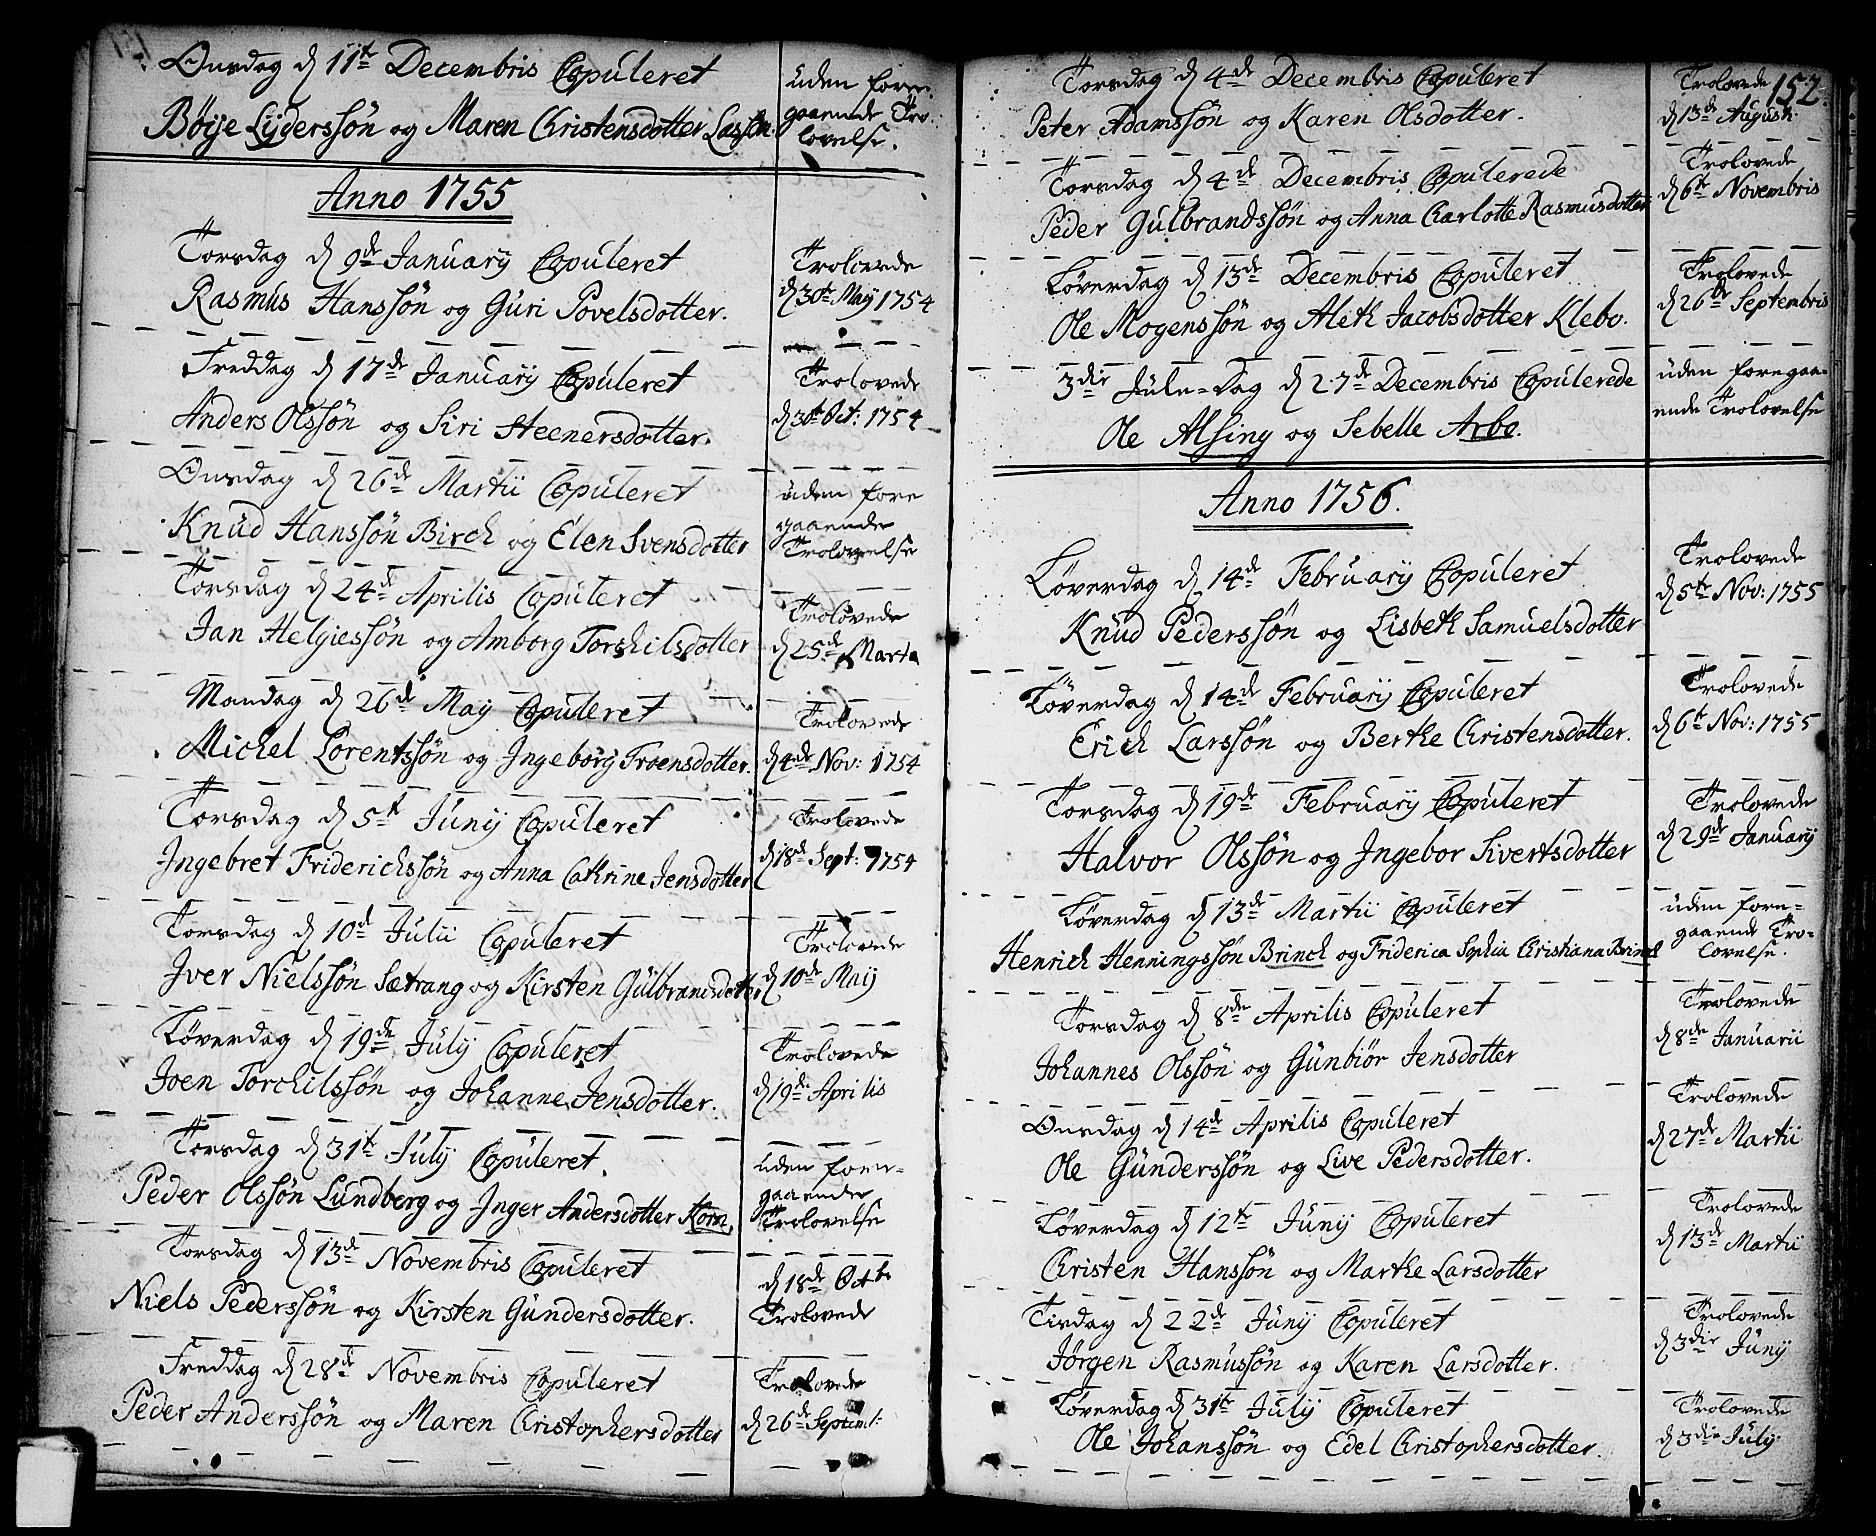 Onsdag d 11te Decembris Copuleret
Børje Lyderssøn og Maren Christensdotter Lassen.
uden fore
gaaende Tro
lovelse.
Anno 1755
Torsdag d 9de January Copuleret
Rasmus Hanssøn og Guri Povelsdotter.
Trolovede
d 30te Maij 1754
Freddag d 17de January Copuleret
Anders Olssøn og Siri Steenersdotter.
Trolovede
d 30te Oct: 1754
Onsdag d 26de Martii Copuleret
Knud Hanssøn Birch og Elen Svensdotter
uden fore
gaaende
Trolovelse
Torsdag d 24de Aprilis Copuleret
Jan Helgiessøn og Amborg Torskilsdotter
Trolovede
d 25de Marti
Mandag d 26de Maij Copuleret
Michel Lorentssøn og Ingeborg Troensdotter.
Trolovede
d 4de Nov: 1754
Torsdag d 5te Junij Copuleret
Ingebret Friderichssøn og Anna Cathrine Jensdotter
Trolovede
d 18de Sept: 1754
Torsdag d 10de Julii Copuleret
Iver Nielssøn Sætrang og Kirsten Gulbrandsdotter
Trolovede
d 10de Maij
Løverdag d 19de July Copuleret
Joen Torchilssøn og Johanne Jensdotter.
Trolovede
d 19de Aprilis
Torsdag d 31te July Copuleret.
Peder Olssøn Lundberg og Inger Andersdotter Korn.
uden fore-
gaaende
Trolovelse
Torsdag d 13de Novembris Copuleret
Niels Pederssøn og Kirsten Gundersdotter.
d 18de Octb
Trolovede
Freddag d 28de Novembris Copuleret
Peder Anderssøn og Maren Christophersdotter
Trolovede
d 26de Septemb:
152.
Torsdag d 4de Decembris Copuleret
Peter Adamssøn og Karen Olsdotter.
Trolovede
d 13de Augusti.
Torsdag d 4de Decembris Copulerede
Peder Gulbrandssøn og Anna Charlotte Rasmusdotter
Trolovede
d 6te Novembris
Løverdag d 13de Decembris Copuleret
Ole Mogenssøn og Aleth Jacobsdotter Klebo.
Trolovede
d 26de Septembris
3die Jule-Dag d 27de Decembris Copulerede
Ole Alsing og Sebelle Arbo.
uden foregaa-
ende Trolovelse
Anno 1756.
Løverdag d 14de February Copuleret
Knud Pederssøn og Lisbeth Samuelsdotter
Trolovede
d 5te Nov: 1755
Løverdag d 14de February Copuleret
Erich Larssøn og Berthe Christensdotter.
Trolovede
d 6te Nov: 1755
Torsdag d 19de February Copuleret
Halvor Olssøn og Ingebor Sivertsdotter
Trolovede
d 29de January
Løverdag d 13de Martii Copuleret
Henrich Henningssøn Brinch og Friderica Sophia Christiana Brinch
uden fore-
gaaende Tro-
lovelse.
Torsdag d 8de Aprilis Copuleret
Johannes Olssøn og Gunbiør Jensdotter
Trolovede
d 8de Januarii
Onsdag d 14de Aprilis Copuleret
Ole Gunderssøn og Live Pedersdotter.
Trolovede
d 27de Martii
Løverdag d 12te Junij Copuleret
Christen Hanssøn og Marthe Larsdotter
Trolovede
d 13de Martii
Tirdag d 22de Junij Copuleret
Jørgen Rasmussøn og Karen Larsdotter.
Trolovede
d 3die Junij
Løverdag d 31te July Copuleret
Ole Johanssøn og Edel Christophersdotter.
Trolovede
d 3die July